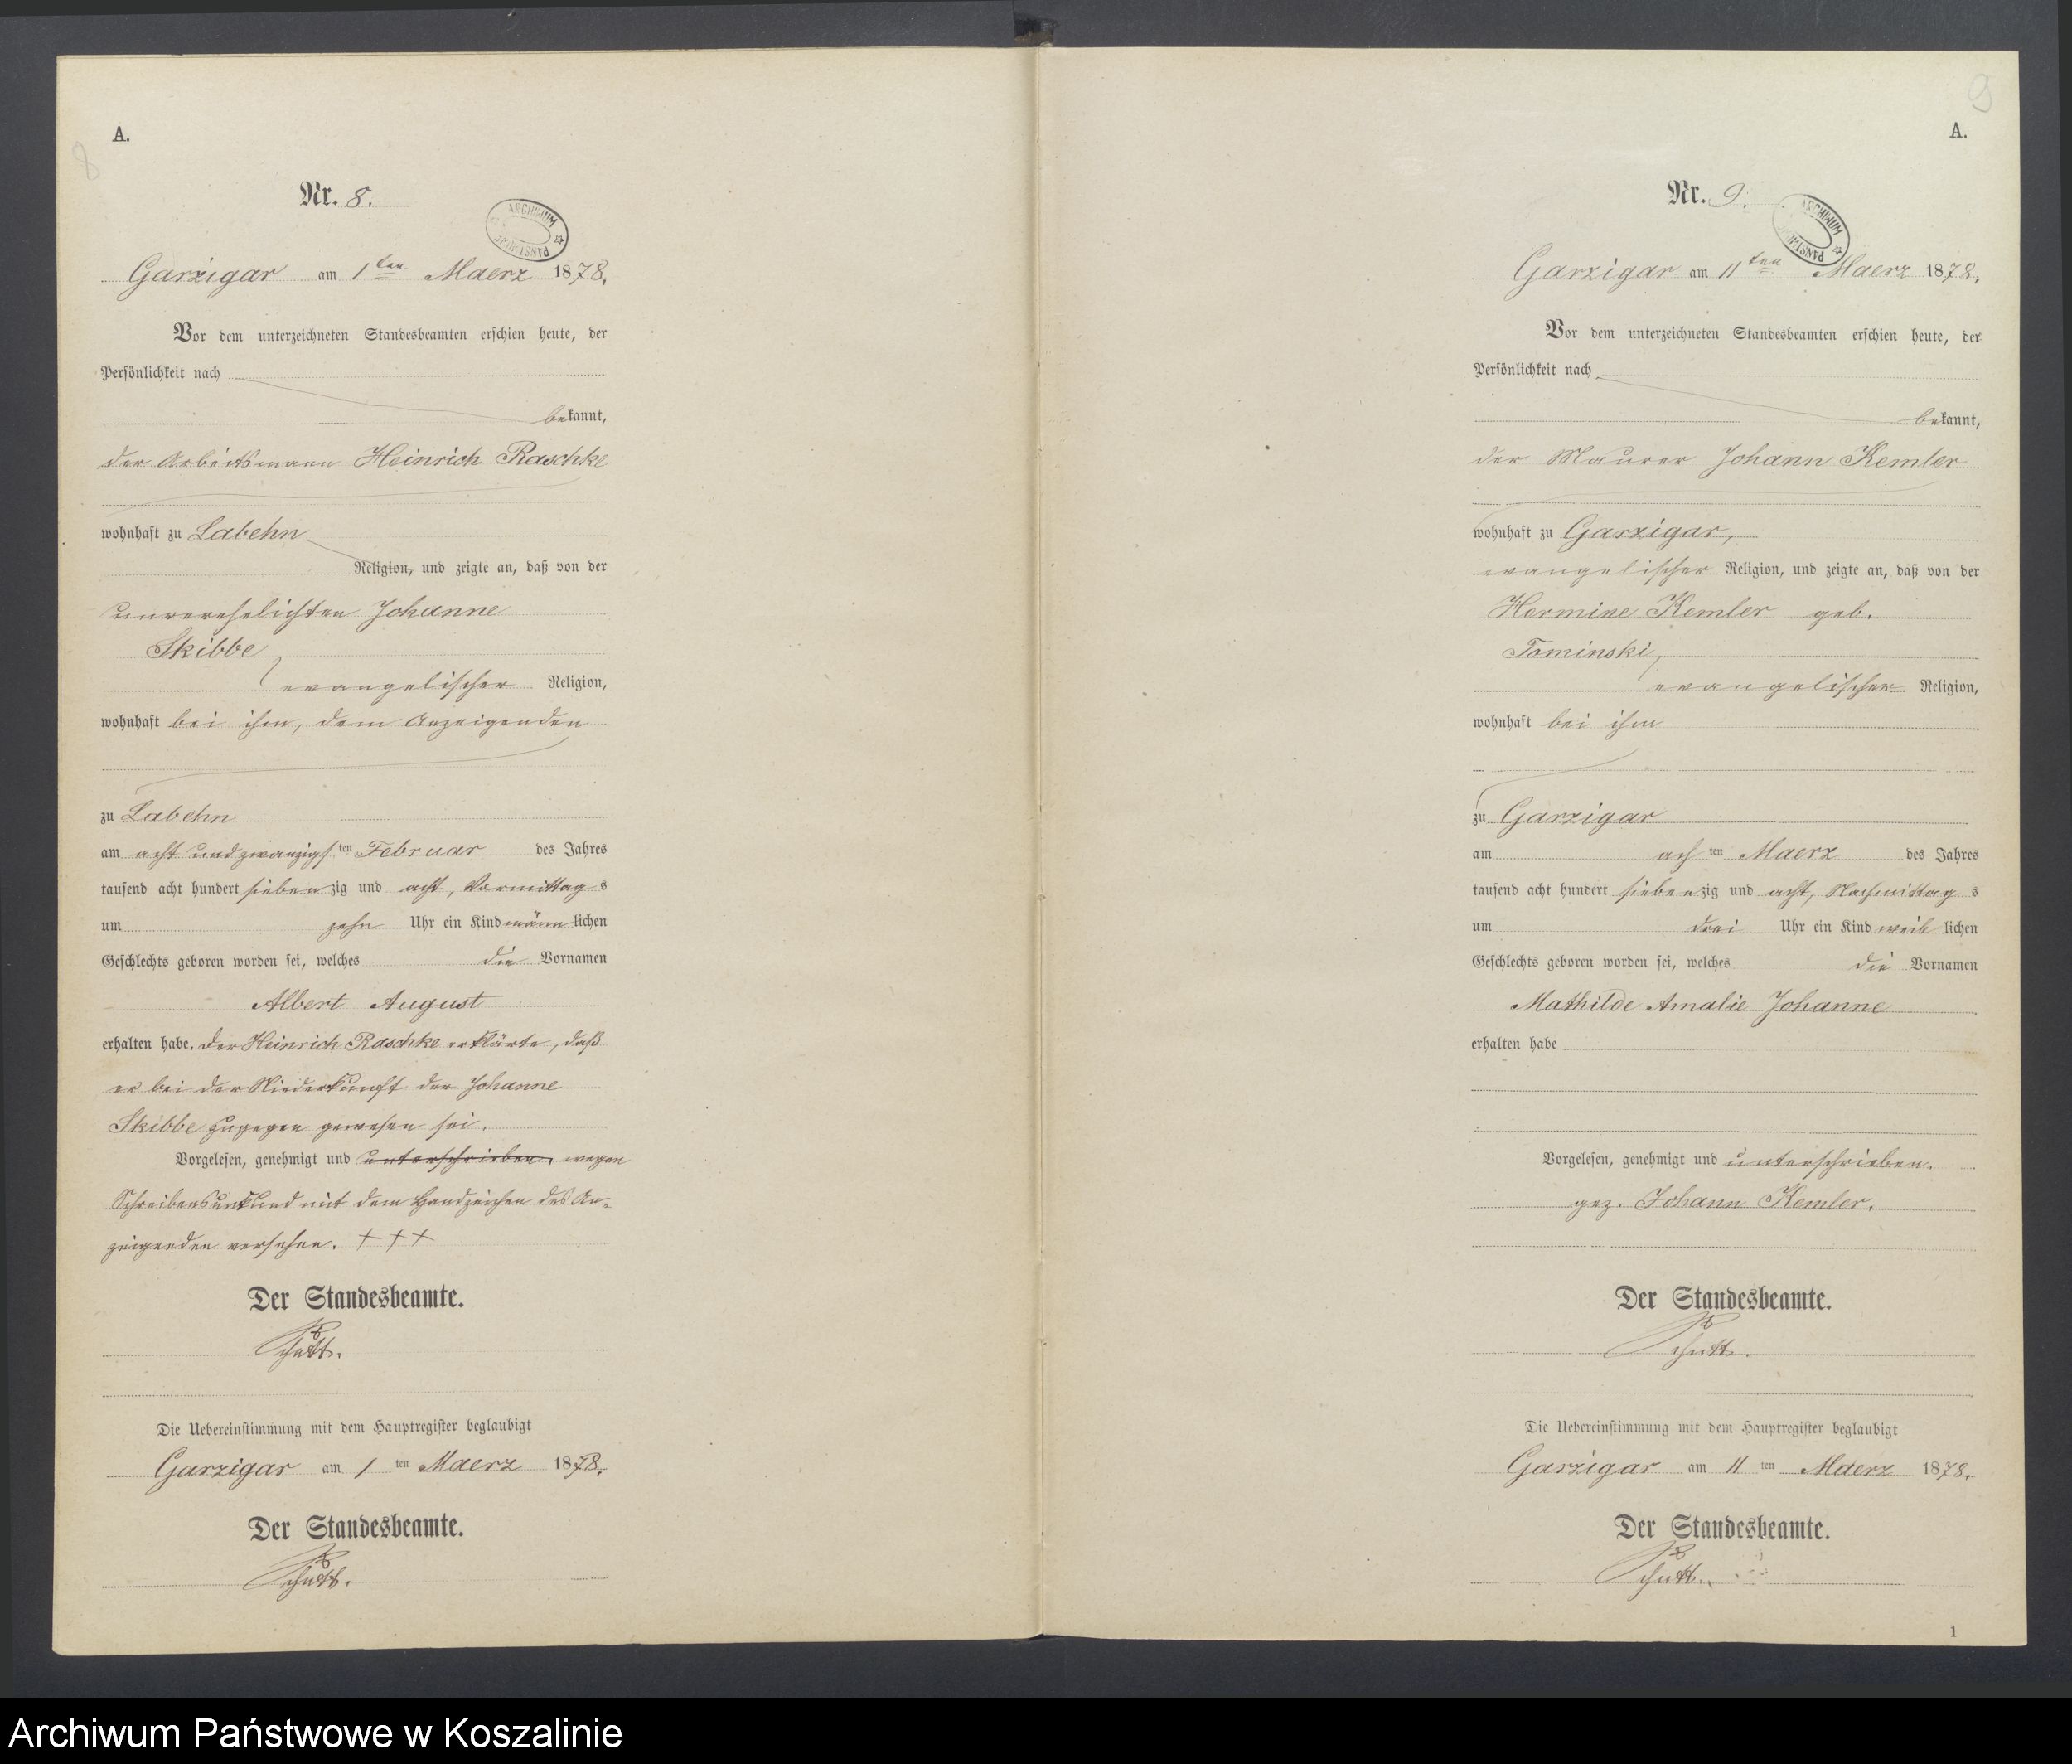 8
A.
Nr. 8.
ARCHIWUM PAŃSTWOWE
Garzigar am 1ten Maerz 1878.
Vor dem unterzeichneten Standesbeamten erschien heute, der
Persönlichkeit nach
bekannt,
der Arbeitsmann Heinrich Raschke
wohnhaft zu Labehn
Religion, und zeigte an, daß von der
unverehelichten Johanne
Skibbe
evangelischer Religion,
wohnhaft bei ihm, dem Anzeigenden
zu Labehn
am acht und zwanzigsten Februar des Jahres
tausend acht hundert siebenzig und acht, Vormittags
um zehn Uhr ein Kind männlichen
Geschlechts geboren worden sei, welches die Vornamen
Albert August
erhalten habe. Der Heinrich Raschke erklärte, daß
er bei der Niederkunft der Johanne
Skibbe zugegen gewesen sei.
Vorgelesen, genehmigt und unterschrieben, wegen
Schreibensunkund mit dem Handzeichen des An-
zeigenden versehen. +++
Der Standesbeamte.
Schutt.
Die Uebereinstimmung mit dem Hauptregister beglaubigt
Garzigar am 1ten Maerz 1878.
Der Standesbeamte.
Schutt.
9
A.
Nr. 9.
ARCHIWUM PAŃSTWOWE
Garzigar am 11ten Maerz 1878.
Vor dem unterzeichneten Standesbeamten erschien heute, der
Persönlichkeit nach
bekannt,
der Maurer Johann Kemler
wohnhaft zu Garzigar,
evangelischer Religion, und zeigte an, daß von der
Hermine Kemler geb.
Tominski,
evangelischer Religion,
wohnhaft bei ihm
zu Garzigar
am achten Maerz des Jahres
tausend acht hundert siebenzig und acht, Nachmittags
um drei Uhr ein Kind weiblichen
Geschlechts geboren worden sei, welches die Vornamen
Mathilde Amalie Johanne
erhalten habe
Vorgelesen, genehmigt und unterschrieben.
gez. Johann Kemler.
Der Standesbeamte.
Schutt.
Die Uebereinstimmung mit dem Hauptregister beglaubigt
Garzigar am 11ten Maerz 1878.
Der Standesbeamte.
Schutt.
1
Archiwum Państwowe w Koszalinie